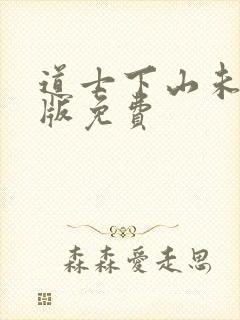 道士下山未
版免费
森森爱走思